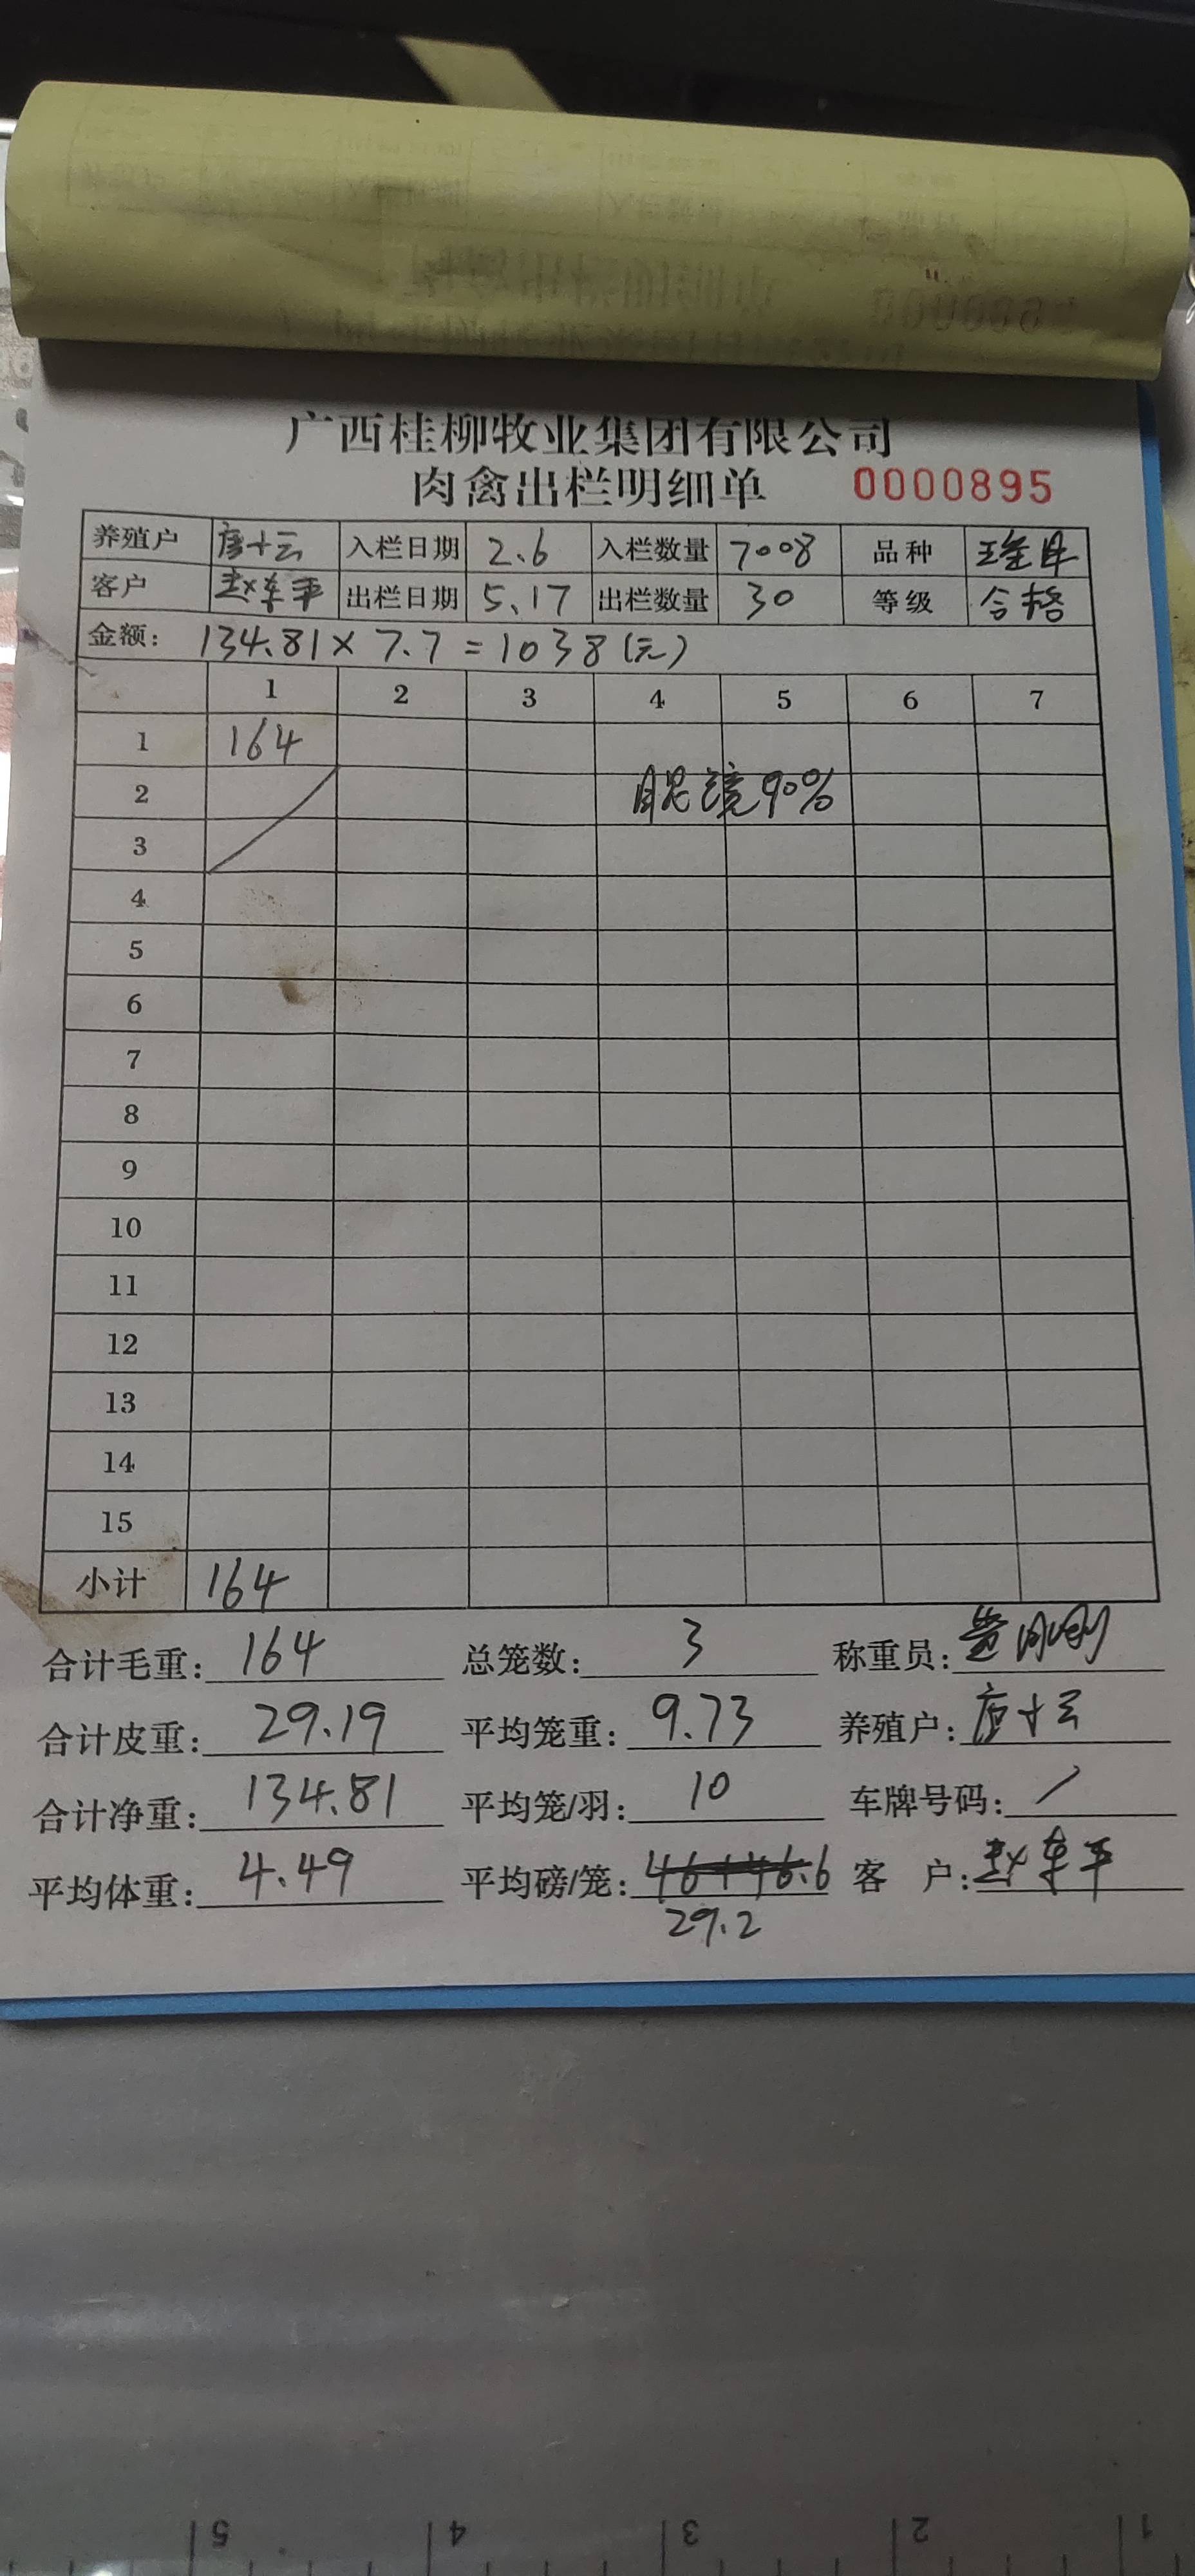 广西桂柳牧业集团有限公司
肉禽出栏明细单 0000895
养殖户 唐十云 入栏日期 2.6 入栏数量 7008 品种
客户 赵车平 出栏日期 5.17 出栏数量 30 等级 合格
金额: 134.81 × 7.7 = 1038 (元)
1 2 3 4 5 6 7
1 164
2 眼镜90%
3
4
5
6
7
8
9
10
11
12
13
14
15
小计 164
合计毛重: 164 总笼数: 3 称重员:
合计皮重: 29.19 平均笼重: 9.73 养殖户: 唐十云
合计净重: 134.81 平均笼/羽: 10 车牌号码: /
平均体重: 4.49 平均磅/笼: 客 户: 赵车平
29.2
5 4 3 2 1